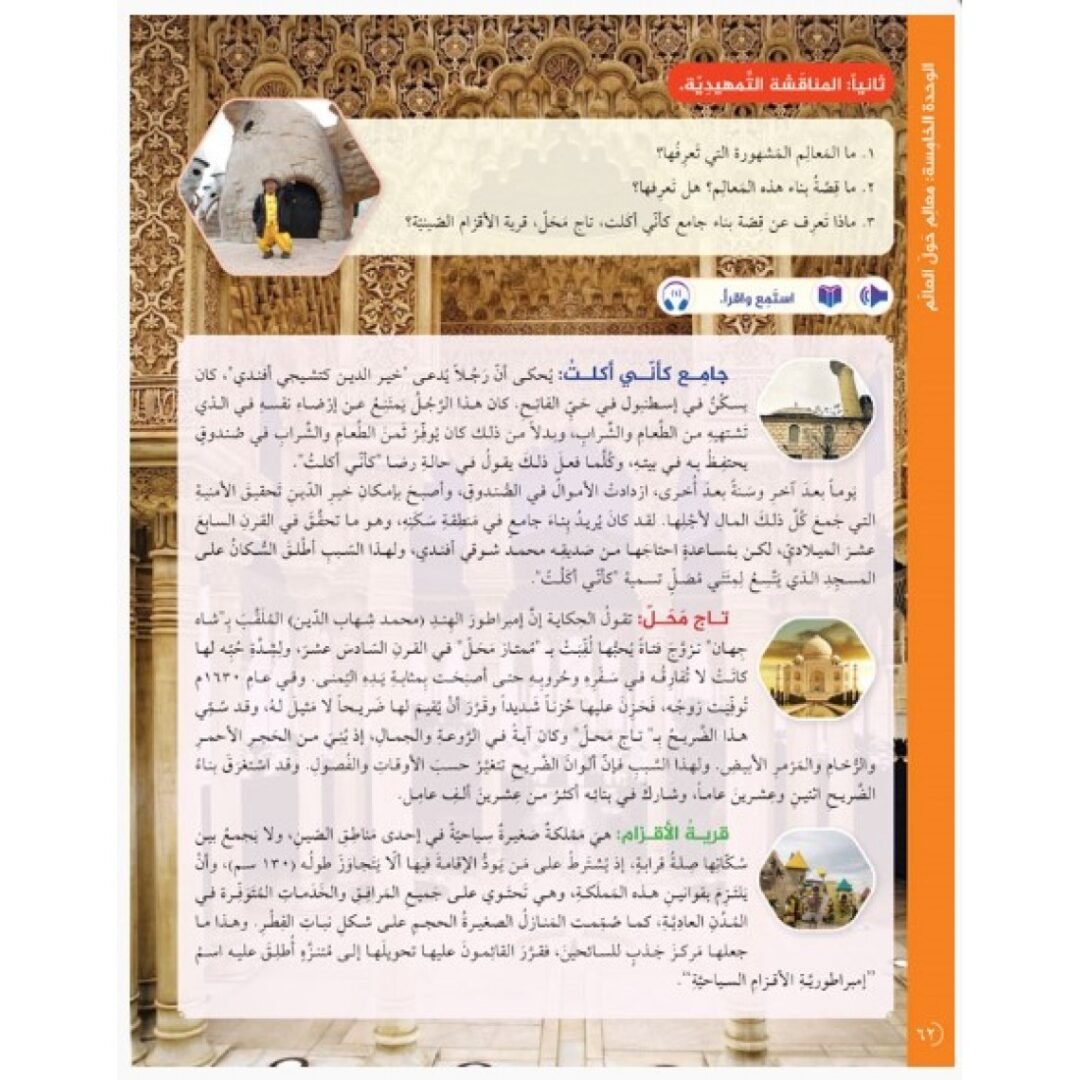 الوحدة الخامِسة: معالِم حَولَ العالَم
ثانياً: المناقَشة التَّمهيديّة.
١. ما المَعالِم المَشهورة التي تَعرِفُها؟
٢. ما قِصَّةُ بِناء هذه المَعالِم؟ هل تَعرِفها؟
٣. ماذا تَعرِف عن قِصّة بناء جامع كأنّي أكلت، تاج مَحَلّ، قرية الأقزام الصّينيّة؟
استَمِع واقرأ.
جامِع كأنّي أكلتُ: يُحكى أنّ رَجُلاً يُدعى "خير الدين كتشيجي أفندي"، كان
يسكُنُ في إسطنبول في حَيّ الفاتِح. كان هذا الرَّجُلُ يَمتَنِعُ عن إرضاء نفسه في الذي
تَشتهيهِ من الطَّعامِ والشَّرابِ، وبدلاً من ذلك كان يُوفِّرُ ثَمنَ الطَّعامِ والشَّرابِ في صُندوقٍ
يحتفِظُ به في بيتهِ، وكُلَّما فعلَ ذلكَ يقولُ في حالةِ رضا "كأنّي أكلتُ".
يَوماً بعدَ آخر وسَنةً بعدَ أُخرى، ازدادتْ الأموالُ في الصُّندوقِ، وأصبحَ بإمكانِ خير الدّين تَحقيقَ الأُمنيةِ
التي جَمعَ كُلَّ ذلكَ المالِ لأجْلها. لقد كانَ يُريدُ بِناءَ جامع في مَنطِقةِ سَكنِهِ، وهو ما تحقَّقَ في القرن السابعَ
عشرَ الميلاديّ، لكن بمُساعدةٍ احتاجَها من صَديقِه محمد شوقي أفندي، ولهذا السَّبب أطْلقَ السُّكانُ على
المسجِدِ الذي يَتَّسِعُ لِمِئَتي مُصَلٍّ تسمية "كأنّي أكَلْتُ".
تاج مَحَلّ: تقولُ الحكاية إنَّ إمبراطورَ الهندِ (محمد شهاب الدّين) المُلقَّبَ بِـ"شاه
جِهان" تزوَّجَ فتاةً يُحبُّها لُقِّبَتْ بـ "مُمتاز مَحَلّ" في القرنِ السّادسَ عشرَ، ولشِدَّةِ حُبِّه لها
كانَتْ لا تُفارِقُه في سَفَرِه وحُروبِه حتى أصبَحت بِمثابةِ يَدِهِ اليُمنى. وفي عام ١٦٣٠م
تُوفِّيَت زَوجَه، فحَزِنَ عليها حُزناً شديداً وقرَّرَ أنْ يُقيمَ لها ضَريحاً لا مَثيلَ لهُ، وقد سُمّي
هذا الضَّريحُ بـ" تاج مَحَلّ" وكان آيةً في الرَّوعةِ والجمالِ، إذ بُنيَ من الحَجرِ الأحمرِ
والرُّخامِ والمَرْمرِ الأبيضِ. ولهذا السَّببِ فإنَّ ألوانَ الضَّريح تتغيَّرُ حسبَ الأوقاتِ والفُصولِ. وقد استَغرَقَ بناءُ
الضَّريحِ اثنَينِ وعِشرينَ عاماً، وشاركَ في بنائِه أكثرُ من عِشرينَ ألفِ عاملٍ.
قريةُ الأقزام: هي مَمْلكةٌ صَغيرةٌ سياحيّةٌ في إحدى مَناطقِ الصّين، ولا يجمعُ بينَ
سُكّانِها صِلةُ قرابةٍ، إذ يُشترطُ على مَن يَودُّ الإقامةَ فيها ألّا يَتجاوَزَ طولُه (١٣٠ سم)، وأنْ
يَلتزِمَ بقوانينِ هذه المَملَكةِ، وهي تَحتَوي على جَميعِ المَرافِقِ والخَدماتِ المُتَوفِّرةِ في
المُدُنِ العاديّةِ، كما صُمِّمت المَنازلُ الصغيرةُ الحجمِ على شكلِ نباتِ الفِطْرِ. وهذا ما
جعلَها مَركزَ جَذبٍ للسائحينَ، فقرَّرَ القائِمونَ عليها تحويلَها إلى مُتنزَّهٍ أُطلِقَ عليه اسمُ
"إمبراطوريّةِ الأقزامِ السياحيّةِ".
٦٢